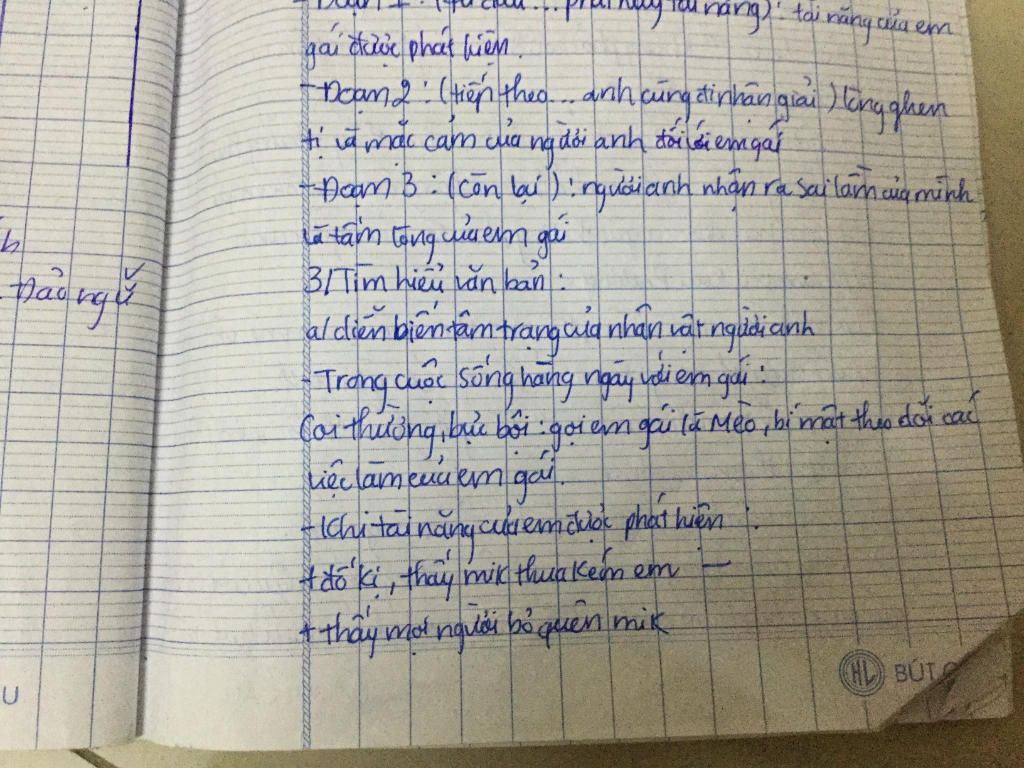 - Đoạn 1: (từ đầu... phải hay tài năng): tài năng của em
gái được phát hiện.
- Đoạn 2: (tiếp theo... anh cùng đi nhận giải) lòng ghen
tị và mặc cảm của người anh đối với em gái
- Đoạn 3: (còn lại): người anh nhận ra sai lầm của mình
và tấm lòng của em gái
3/ Tìm hiểu văn bản:
a/ diễn biến tâm trạng của nhân vật người anh
- Trong cuộc sống hàng ngày với em gái:
Coi thường, bực bội: gọi em gái là Mèo, bí mật theo dõi các
việc làm của em gái.
- Khi tài năng của em được phát hiện:
+ đố kị, thấy mik thua kém em —
+ thấy mọi người bỏ quên mik
b
Đảo ngữ
U
HL BÚT